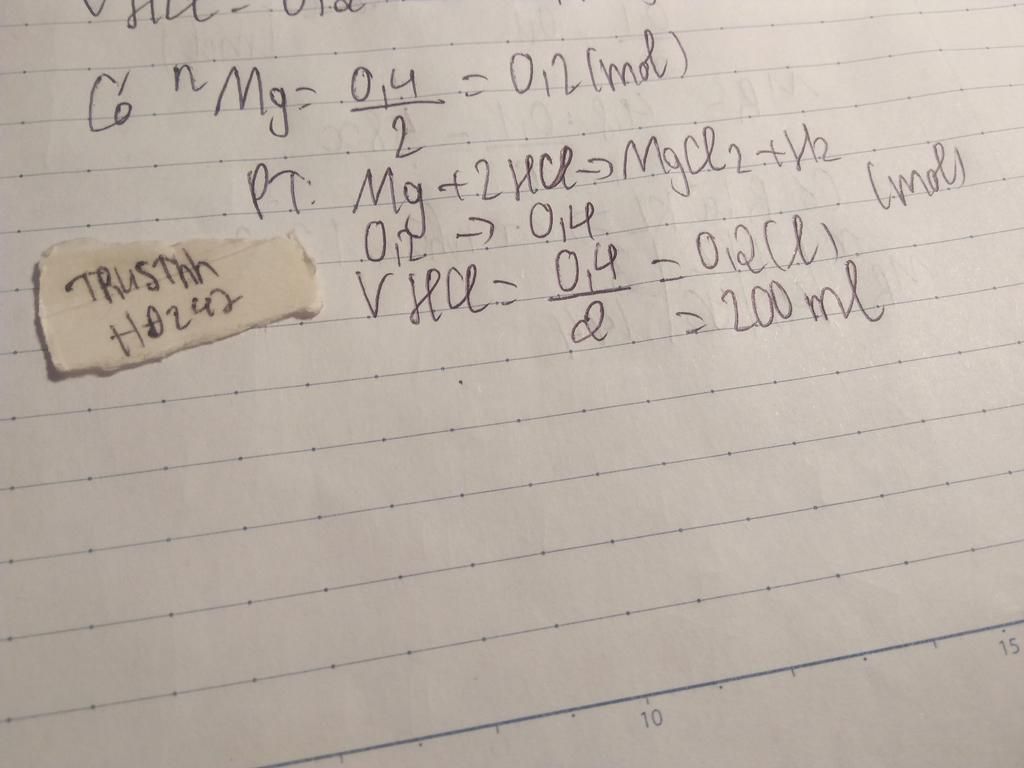 V HCl = 0,2
Có n Mg = 0,4/2 = 0,2 (mol)
PT: Mg + 2HCl → MgCl2 + H2
0,2 → 0,4 (mol)
V HCl = 0,4/2 = 0,2 (l)
= 200 ml
TRUSTAM
HD242
10
15